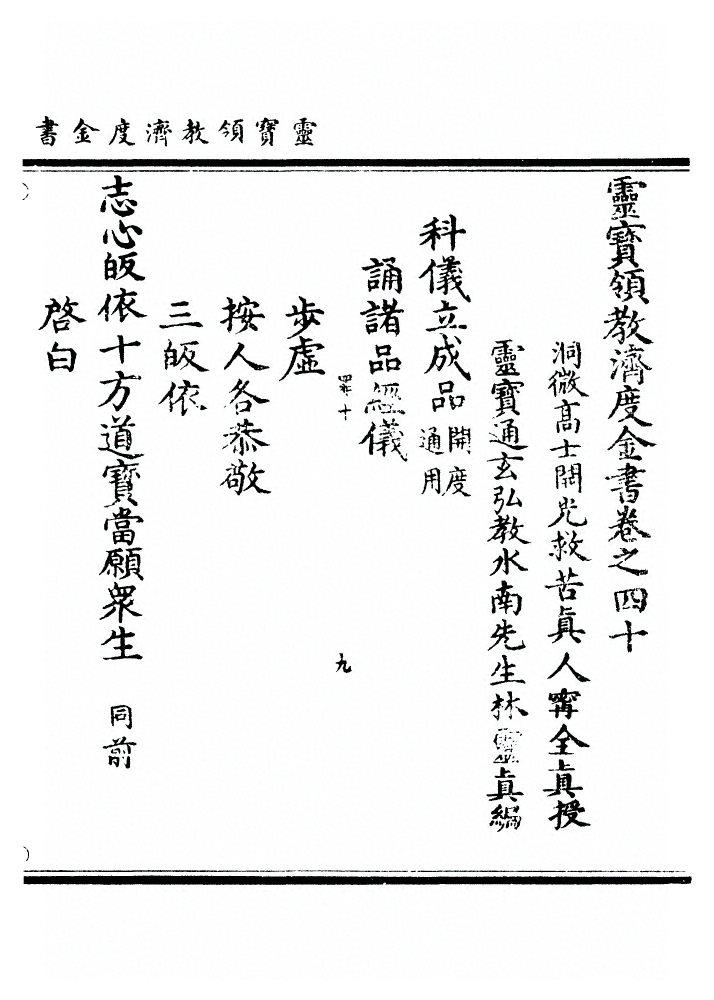 靈寶領教濟度金書
靈寶領教濟度金書卷之四十
洞微高士開光救苦真人甯全真授
靈寶通玄弘教水南先生林靈真編
科儀立成品 開度通用
誦諸品經儀
四十
九
步虛
按人各恭敬
三皈依
志心皈依十方道寶當願衆生 同前
啓白